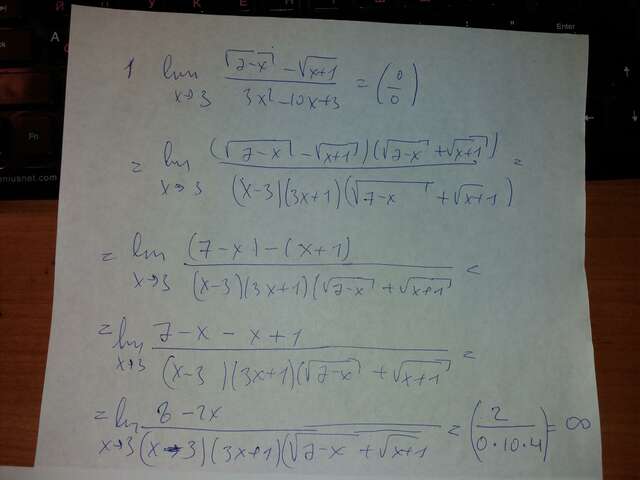 Enter
1 lim x→3 (√7-x - √x+1)/(3x²-10x+3) = (0/0)
Fn
= lim x→3 (√7-x - √x+1)(√7-x + √x+1)/(x-3)(3x+1)(√7-x + √x+1) =
niusnet.com
= lim x→3 (7-x)-(x+1)/(x-3)(3x+1)(√7-x + √x+1) =
= lim x→3 7-x-x+1/(x-3)(3x+1)(√7-x + √x+1) =
= lim x→3 8-2x/(x-3)(3x+1)(√7-x + √x+1 = (2/0·10·4) = ∞